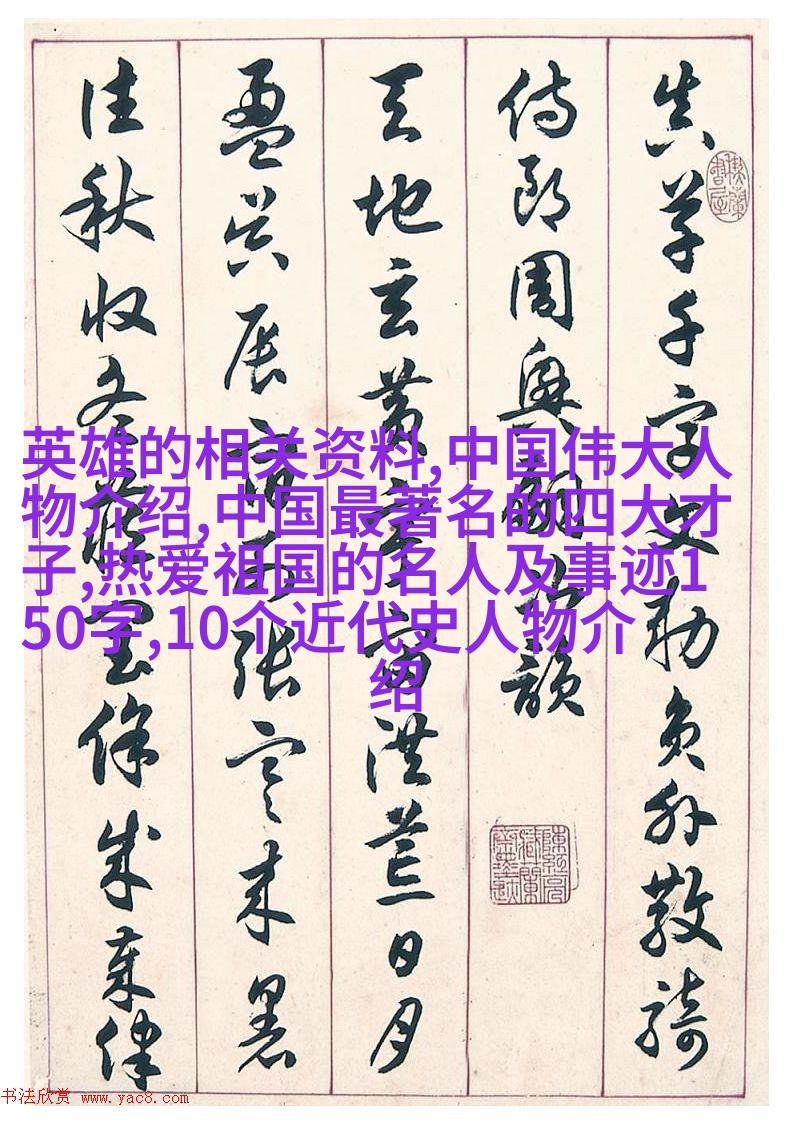 真草千字文勅员外散骑
侍郎周兴嗣次韵
天地玄黄宇宙洪荒日月
盈昃辰宿列张寒来暑
往秋收冬藏闰余成岁律
英雄的相关资料,中国伟大人
物介绍,中国最著名的四大才
子,热爱祖国的名人及事迹1
50字,10个近代史人物介
绍
书法欣赏 www.yac8.com